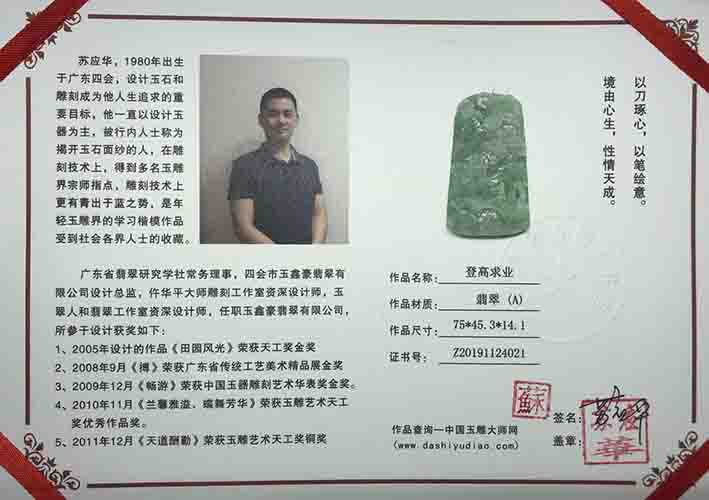 苏应华，1980年出生
于广东四会，设计玉石和
雕刻成为他人生追求的重
要目标，他一直以设计玉
器为主，被行内人士称为
揭开玉石面纱的人，在雕
刻技术上，得到多名玉雕
界宗师指点，雕刻技术上
更有青出于蓝之势，是年
轻玉雕界的学习楷模作品
受到社会各界人士的收藏。
广东省翡翠研究学社常务理事，四会市玉鑫豪翡翠有
限公司设计总监，仵华平大师雕刻工作室资深设计师，玉
翠人和翡翠工作室资深设计师，任职玉鑫豪翡翠有限公司，
所参于设计获奖如下：
1、2005年设计的作品《田园风光》荣获天工奖金奖
2、2008年9月《博》荣获广东省传统工艺美术精品展金奖
3、2009年12月《畅游》荣获中国玉器雕刻艺术华表奖金奖。
4、2010年11月《兰馨雅溢、端舞芳华》荣获玉雕艺术天工
奖优秀作品奖。
5、2011年12月《天道酬勤》荣获玉雕艺术天工奖铜奖
以刀琢心，以笔绘意。
境由心生，性情天成。
作品名称：登高求业
作品材质：翡翠（A）
作品尺寸：75*45.3*14.1
证书号：Z20191124021
作品查询—中国玉雕大师网
（www.dashiyudiao.com）
蘇
签名：
盖章：
華